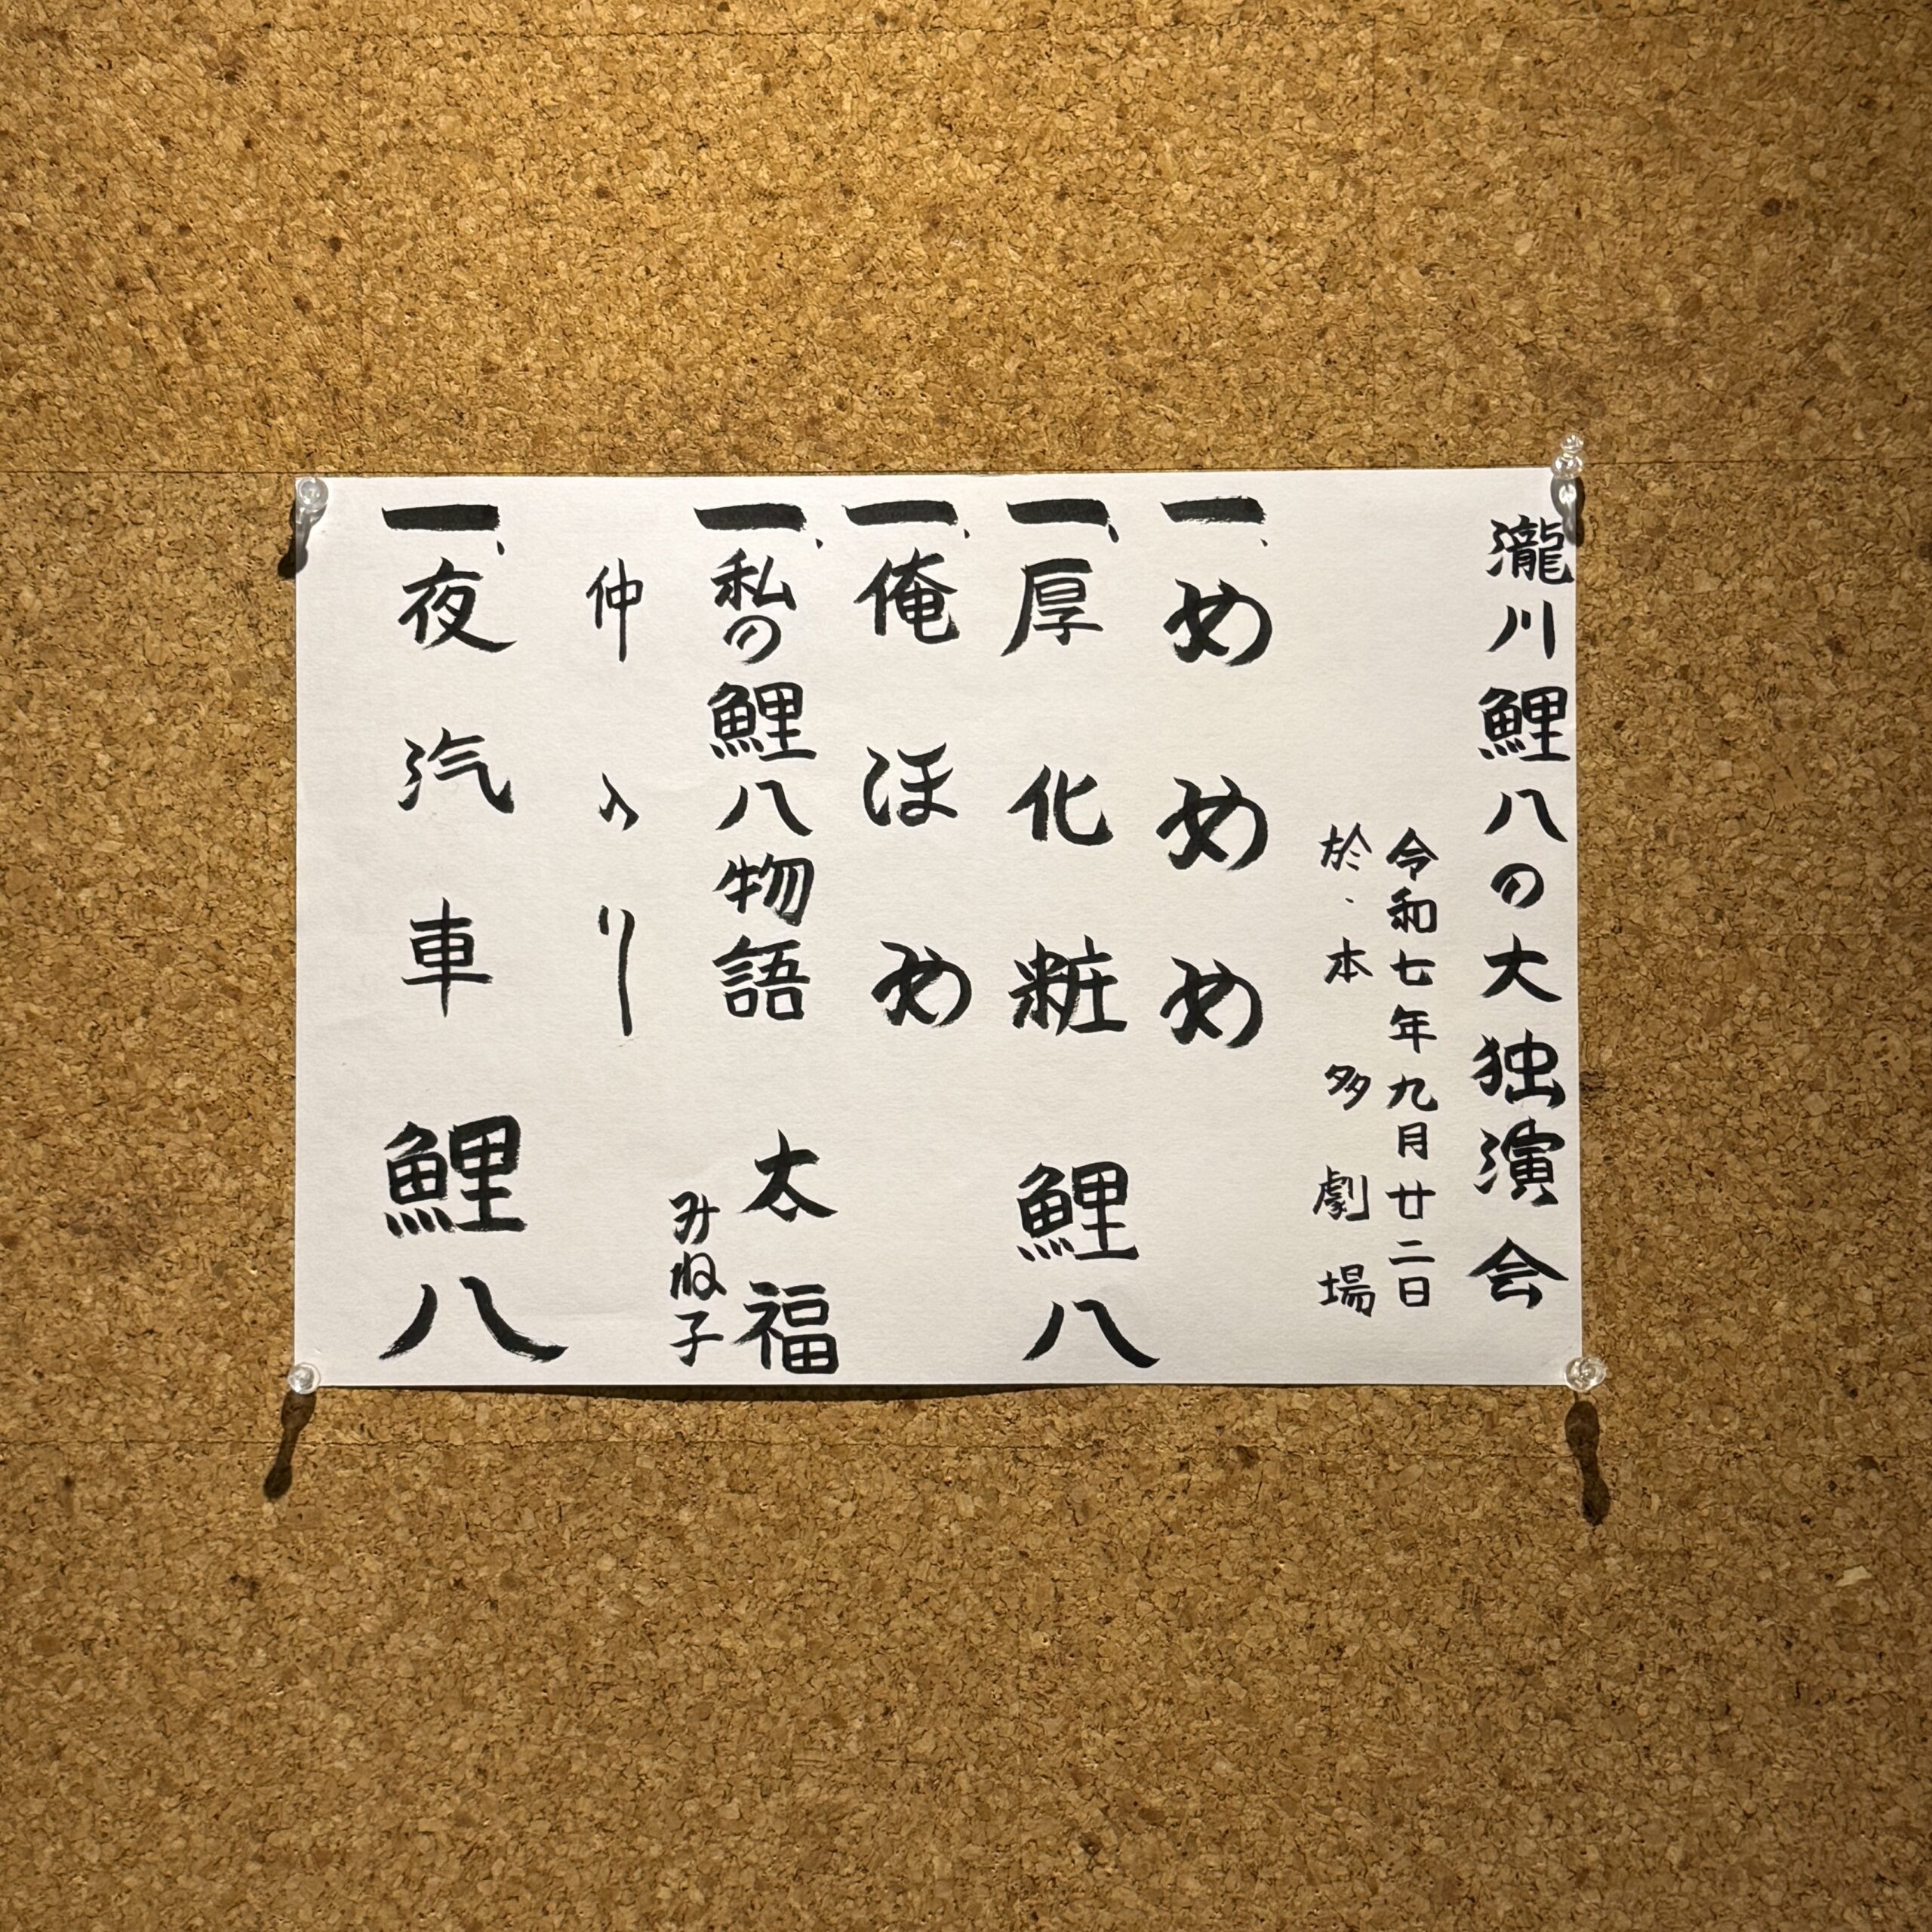 瀧川鯉八の大独演会
令和七年九月廿二日
於.本多劇場
一、めめめ
一、厚化粧 鯉八
一、俺ほめ
一、私の鯉八物語 太福
みね子
仲入り
一、夜汽車 鯉八